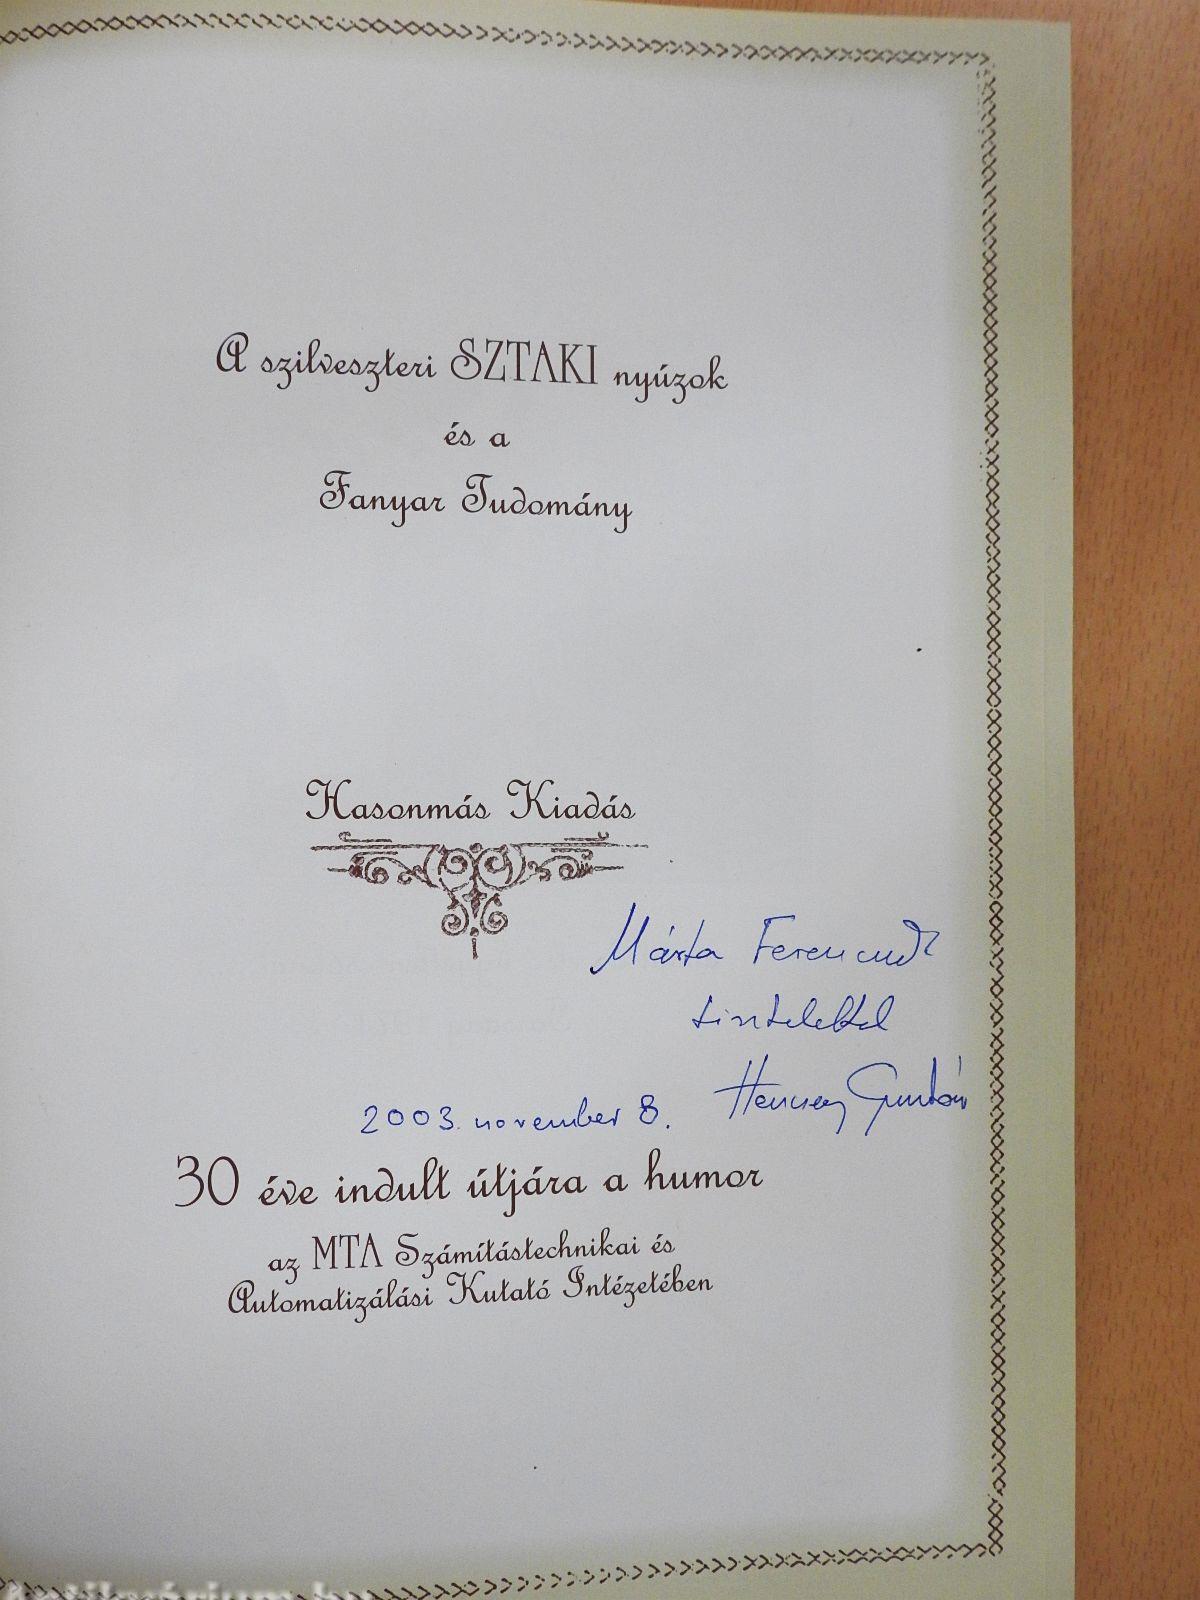 A szilveszteri SZTAKI nyúzok
és a
Fanyar Tudomány
Hasonmás Kiadás
Márta Ferencnek
tisztelettel
2003. november 8.
30 éve indult útjára a humor
az MTA Számítástechnikai és
Automatizálási Kutató Intézetében